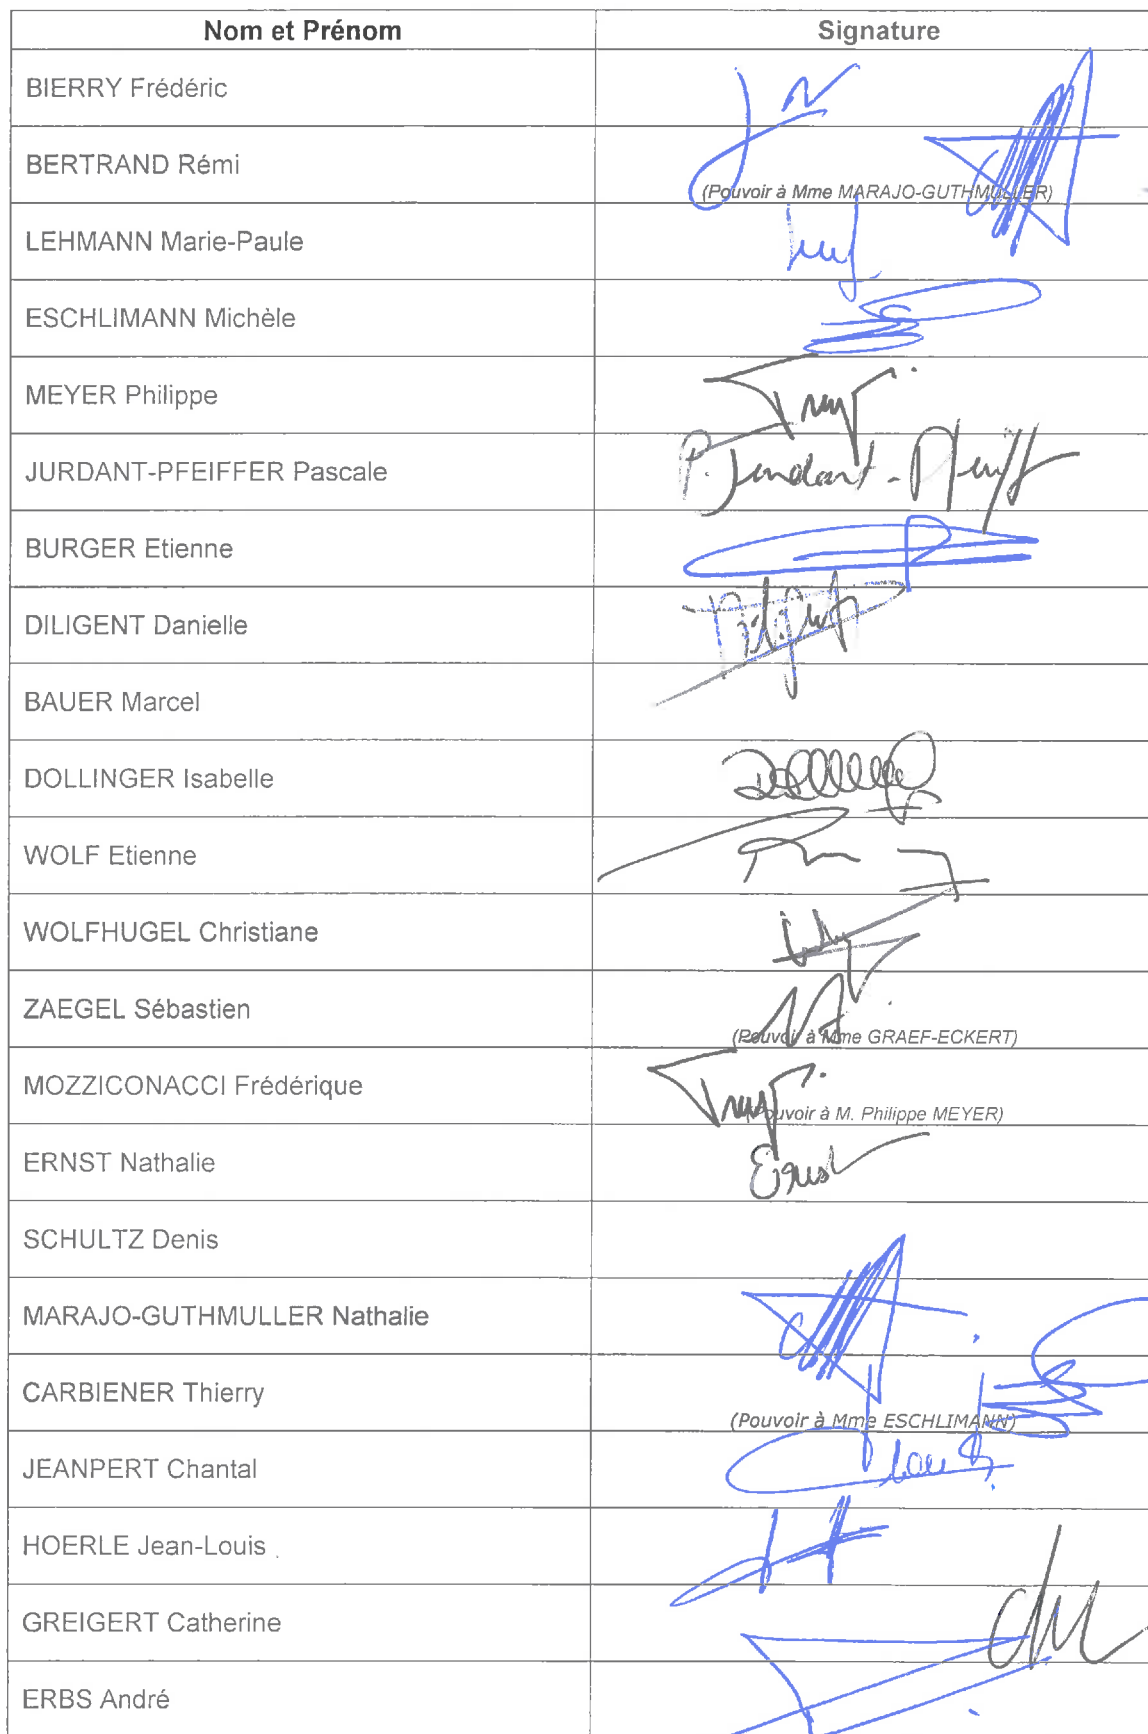 Nom et Prénom Signature
BIERRY Frédéric
BERTRAND Rémi
(Pouvoir à Mme MARAJO-GUTHMULLER)
LEHMANN Marie-Paule
ESCHLIMANN Michèle
MEYER Philippe
JURDANT-PFEIFFER Pascale
P. Jurdant-Pfeiff
BURGER Etienne
DILIGENT Danielle
BAUER Marcel
DOLLINGER Isabelle
WOLF Etienne
WOLFHUGEL Christiane
ZAEGEL Sébastien
(Pouvoir à Mme GRAEF-ECKERT)
MOZZICONACCI Frédérique
(Pouvoir à M. Philippe MEYER)
ERNST Nathalie
Ernst
SCHULTZ Denis
MARAJO-GUTHMULLER Nathalie
CARBIENER Thierry
(Pouvoir à Mme ESCHLIMANN)
JEANPERT Chantal
HOERLE Jean-Louis
GREIGERT Catherine
ERBS André